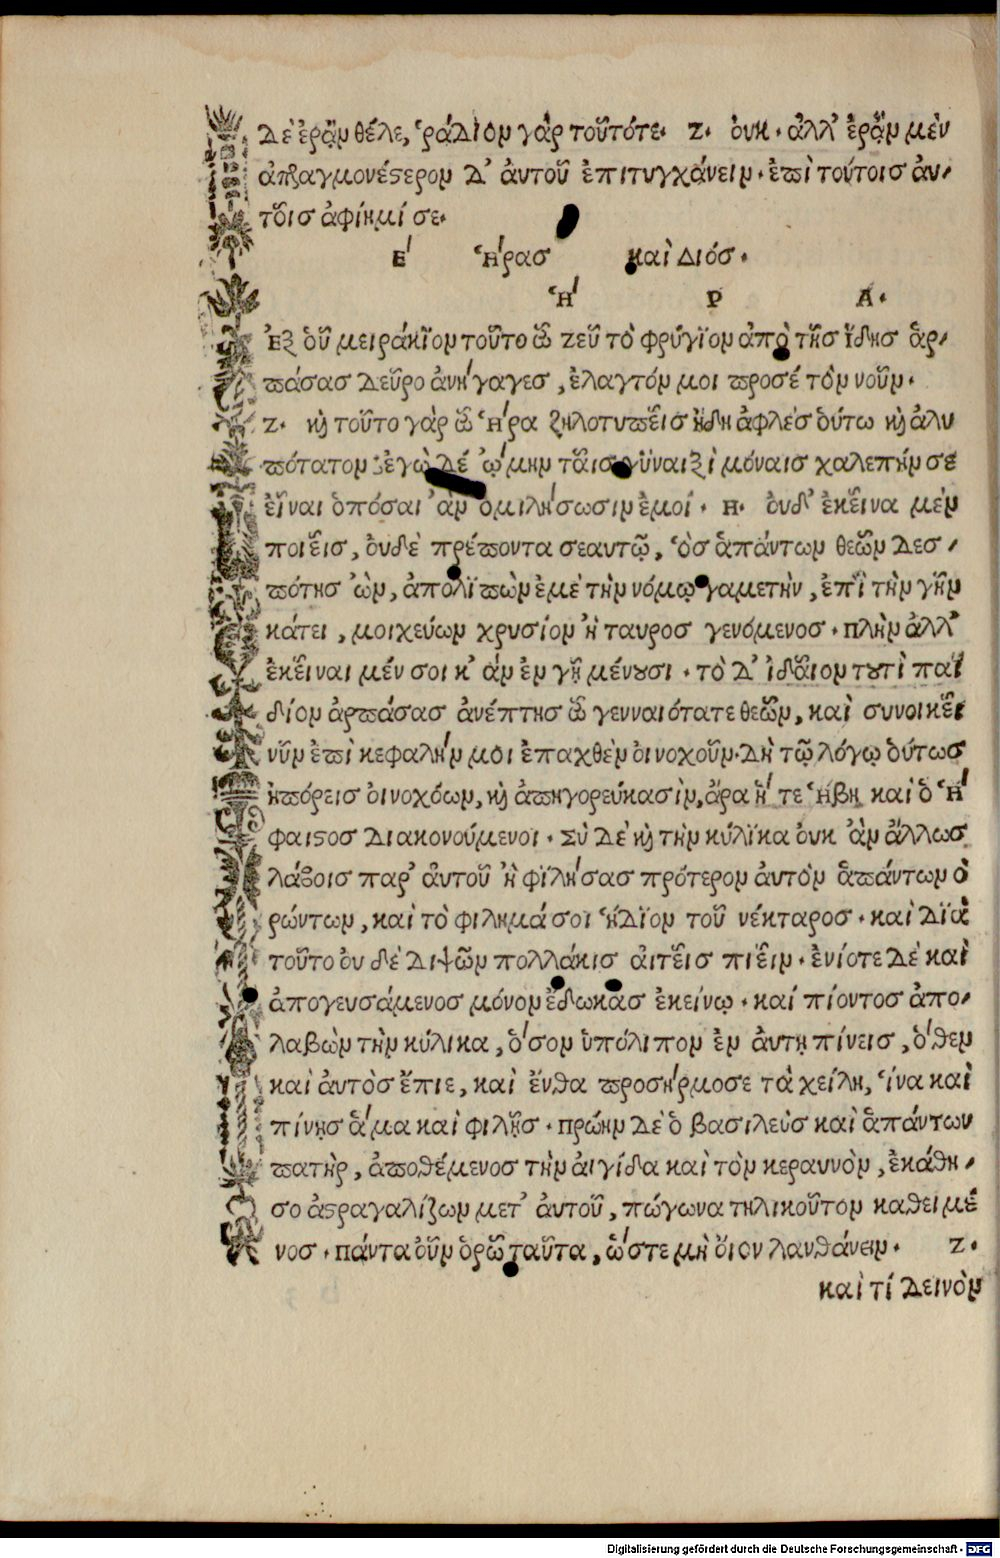 δὲ ἐρᾷν θέλε, ῥάδιον γὰρ τοῦτότε· Ζ· ὀυκ· ἀλλ' ἐρᾷν μὲν
ἀπραγμονέστερον δ' ἀυτοῦ ἐπιτυγχάνειν· ἐπὶ τούτοισ ἀυ-
τοῖσ ἀφίημί σε·
Ε' Ἥρασ καὶ Διόσ·
Ἥ Ρ Α·
Ἐξ ὁῦ μειράκϊον τοῦτο ὦ ζεῦ τὸ φρύγϊον ἀπὸ τῆσ ἴδησ ἁρ-
πάσασ δεῦρο ἀνήγαγεσ, ἐλαγτόμ μοι προσέ τὸν νοῦν·
Ζ· κὴ τοῦτο γὰρ ὦ Ἥρα ζηλοτυπεῖσ ἤδη ἀφλεσ ὁύτω κὴ ἀλυ
πότατον; ἐγὼ δέ ᾤμην ταῖσ γϋναιξὶ μόναισ χαλεπήν σε
εἶναι ὁπόσαι ἂν ὁμιλήσωσιν ἐμοί· Η· ὀυδ' ἐκεῖνα μὲν
ποιεῖσ, ὀυδὲ πρέποντα σεαυτῷ, ὃσ ἁπάντων θεῶν δεσ-
πότησ ὢν, ἀπολϊπὼν ἐμὲ τὴν νόμῳ γαμετὴν, ἐπῒ τὴν γῆν
κάτει, μοιχεύων χρυσίον ἢ ταυροσ γενόμενοσ· πλὴν ἀλλ'
ἐκεῖναι μέν σοι κ' ἀν ἐν γῇ μένουσι· τὸ δ' ἰδαῖον τουτὶ παϊ
δίον ἁρπάσασ ἀνέπτησ ὦ γενναιότατε θεῶν, καὶ συνοικεῖ
νῦν ἐπὶ κεφαλήν μοι ἐπαχθὲν ὀινοχοῦν· δὴ τῷ λόγῳ ὁύτωσ
ἠπόρεισ ὀινοχόων, κὴ ἀπηγορεύκασὶν, ἄρα ἥ τε Ἥβη καὶ ὁ Ἥ
φαιστοσ διακονούμενοι· Σὺ δὲ κὴ τὴν κύλϊκα ὀυκ ἂν ἄλλωσ
λάβοισ παρ' ἀυτοῦ ἢ φϊλήσασ πρότερον ἀυτὸν ἁπάντων ὁ
ρώντων, καὶ τὸ φιλημά σοϊ ἥδϊον τοῦ νέκταροσ· καὶ δϊὰ
τοῦτο ὀυ δὲ διψῶν πολλάκισ ἀιτεῖσ πιεῖν· ἐνίοτε δὲ καὶ
ἀπογευσάμενοσ μόνον ἔδωκασ ἐκείνῳ· καί πίοντοσ ἀπο-
λαβὼν τὴν κύλικα, ὅσον ὑπόλιπον ἐν ἀυτῃ πίνεισ, ὅθεν
καὶ ἀυτὸσ ἔπιε, καὶ ἔνθα προσήρμοσε τὰ χείλη, ἵνα καὶ
πίνῃσ ἅμα καὶ φιλῇσ· πρώην δὲ ὁ βασιλεὺσ καὶ ἁπάντων
πατὴρ, ἀποθέμενοσ τὴν ἀιγίδα καὶ τὸν κεραυνὸν, ἐκάθη-
σο ἀστραγαλίζων μετ' ἀυτοῦ, πώγωνα τηλικοῦτον καθειμέ
νοσ· πάντα ὀῦν ὁρῶ ταῦτα, ὥστε μὴ ὄιον λανθάνειν· Ζ·
καὶ τί δεινὸν
Digitalisierung gefördert durch die Deutsche Forschungsgemeinschaft - DFG